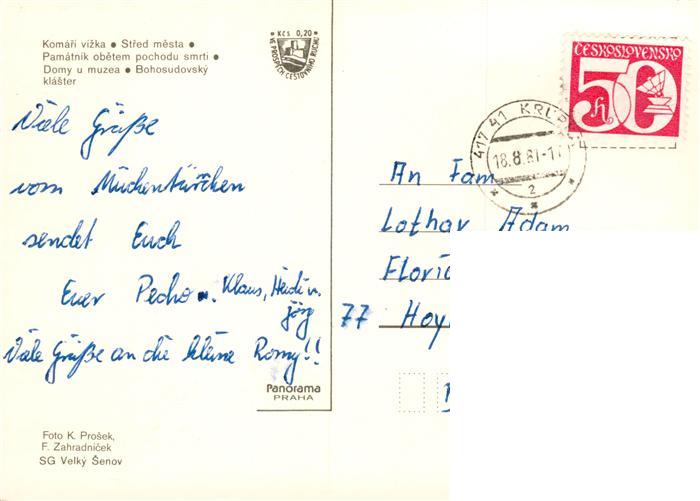 Komáří vížka • Střed města •
Památník obětem pochodu smrti •
Domy u muzea • Bohosudovský
klášter
Kčs 0,20
VE PROSPĚCH CESTOVNÍHO RUCHU
ČESKOSLOVENSKO
50 h
417 41 KRUP
18.8.81-17
2
Viele Grüße
vom Mückentürmchen
sendet Euch
Euer Pecho. Klaus, Heidi u.
Jörg
Viele Grüße an die kleine Romy!!
An Fam
Lothar Adam
Floria
77 Hoy
Panorama
PRAHA
Foto K. Prošek,
F. Zahradníček
SG Velký Šenov